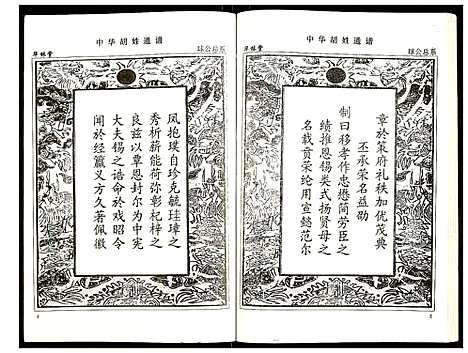 中华胡姓通谱
系总公球
章於策府礼秩加优茂典
丕承荣名益勋
制曰移孝作忠懋简劳臣之
绩推恩锡类式扬贤母之
名载贲荣纶用宣懿范尔
中华胡姓通谱
凤抱璞自珍克毓珪璋之
秀析薪能荷弥彰杞梓之
良兹以覃恩封尔为中宪
大夫锡之诰命於戏昭令
闻於经籯义方久著佩徽